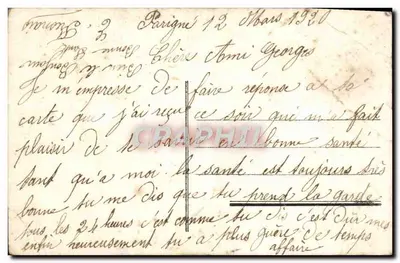 Parigne 12 Mars 1920
Chère Ami Georges
Je m'empresse de faire reponce a ta
carte que j'ai reçu ce soir qui m'a fait
plaisir de te savoir en bonne santé
tant qu'a moi la santé est toujours très
bonne tu me dis que tu prend la garde
tous les 24 heures c'est comme tu dis c'est dur mes
enfin heureusement tu a plus guère de temps
affaire